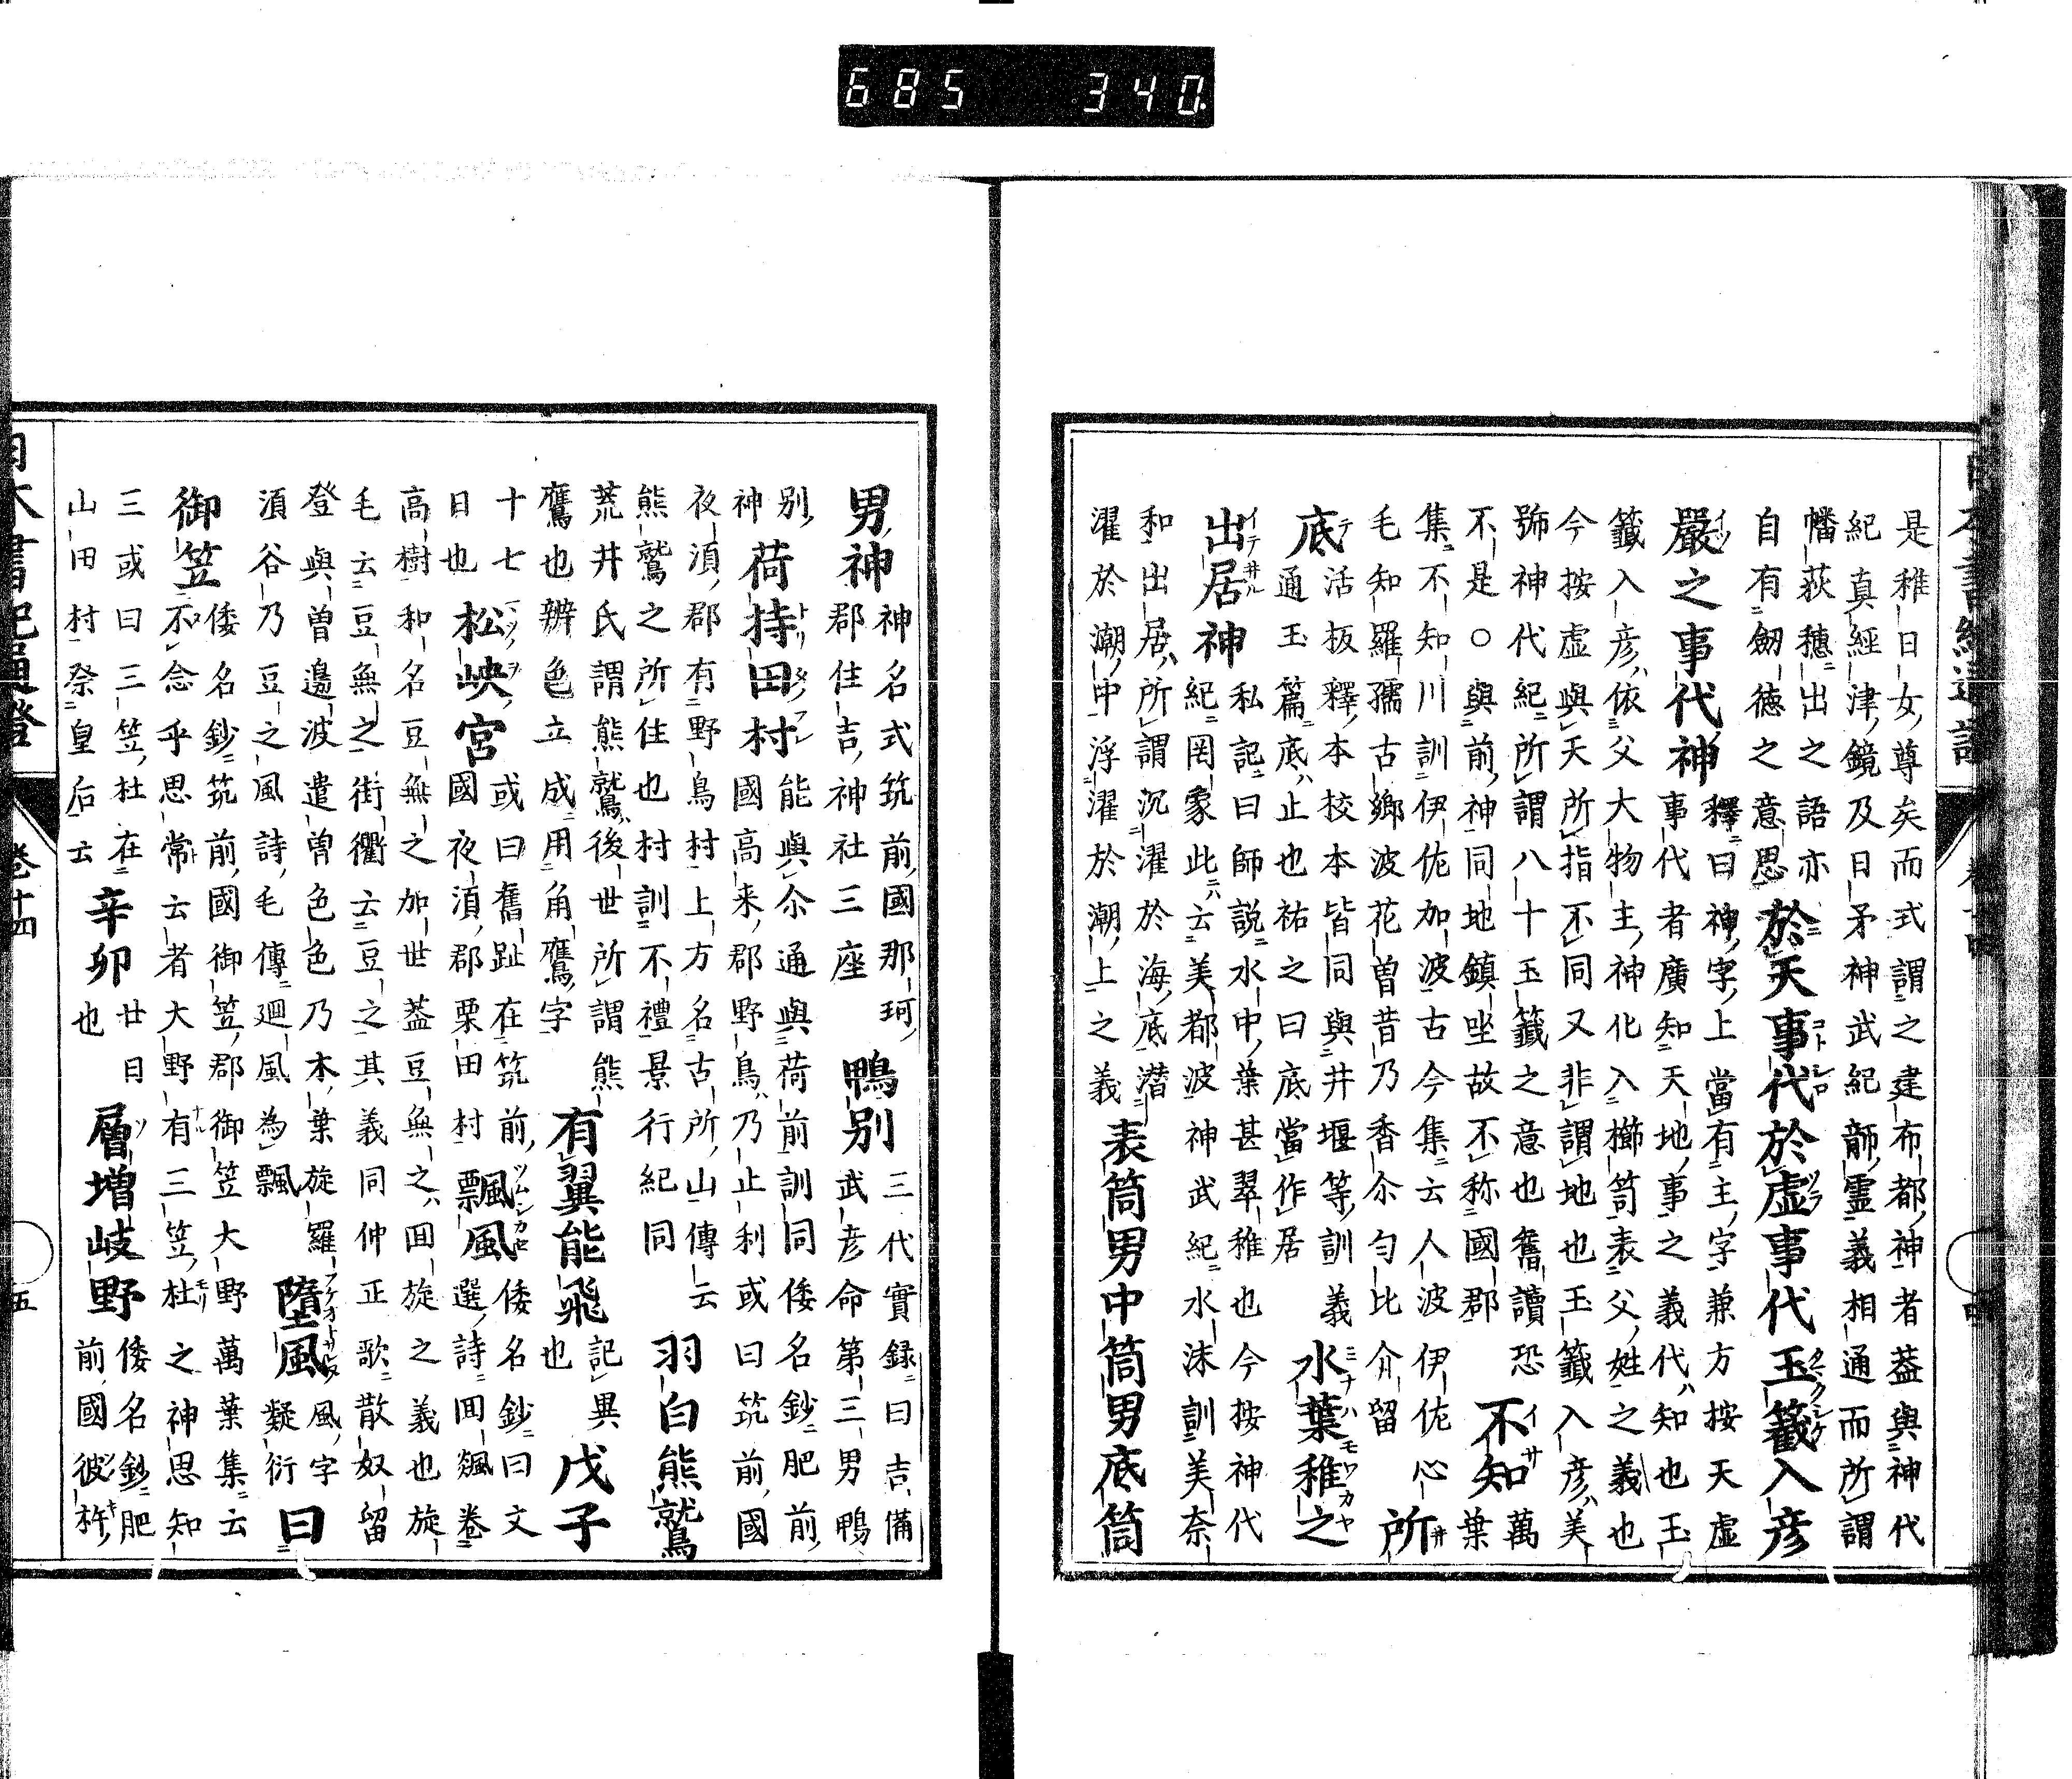 685 340
是稚日女尊矣而式謂之建布都神者蓋與神代
紀真經津鏡及日矛神武紀韴霊義相通而所謂
幡荻穗出之語亦
自有劒德之意思
於天事代於虚事代玉籤入彦
嚴之事代神
釋曰神字上當有主字兼方按天虚
事代者廣知天地事之義代ハ知也玉
籤入彦依父大物主神化入櫛笥表父姓之義也
今按虚與天所指不同又非謂地也玉籤入彦ハ美
號神代紀所謂八十玉籤之意也舊讀恐
不是○與前神同地鎮坐故不称國郡
不知
萬葉
集不知川訓伊佐加波古今集云人波伊佐心
毛知羅孺古鄉波花曽昔乃香尒匂比介留
所
底
活板釋本校本皆同與井堰等訓義
通玉篇底ハ止也祐之曰底當作居
水葉稚之
出居神
私記曰師說水中葉甚翠稚也今按神代
紀罔象此云美都波神武紀水沫訓美奈
和出居ハ所謂沉濯於海底潜
濯於潮中浮濯於潮上之義
表筒男中筒男底筒
日本書紀通證
卷十四
四
男神
神名式筑前國那珂
郡住吉神社三座
鴨別
三代實録曰吉備
武彦命第三男鴨
別
荷持田村
能與尒通與荷前訓同倭名鈔肥前
國高来郡野鳥ハ乃止利或曰筑前國
神
夜須郡有野鳥村上方名古所山傳云
羽白熊鷲
熊鷲之所住也村訓不禮景行紀同
荒井氏謂熊鷲ハ後世所謂熊
鷹也辨色立成用角鷹字
有翼能飛
記異
也
戊子
十七
日也
松峽宮
或曰舊趾在筑前
國夜須郡栗田村
飄風
倭名鈔曰文
選詩囬飈卷
高樹和名豆無之加世蓋豆無之ハ囬旋之義也旋
毛云豆無之街衢云豆之其義同仲正歌散奴留
登與曽邊波遣曽色色乃木葉旋羅
須谷乃豆之風詩毛傳廻風為飄
墮風
風字
疑衍
曰
御笠
倭名鈔筑前國御笠郡御笠大野萬葉集云
不念乎思常云者大野有三笠杜之神思知
三或曰三笠杜在
山田村祭皇后云
辛卯
廿日
也
層増岐野
倭名鈔肥
前國彼杵
日本書紀通證
卷十四
五